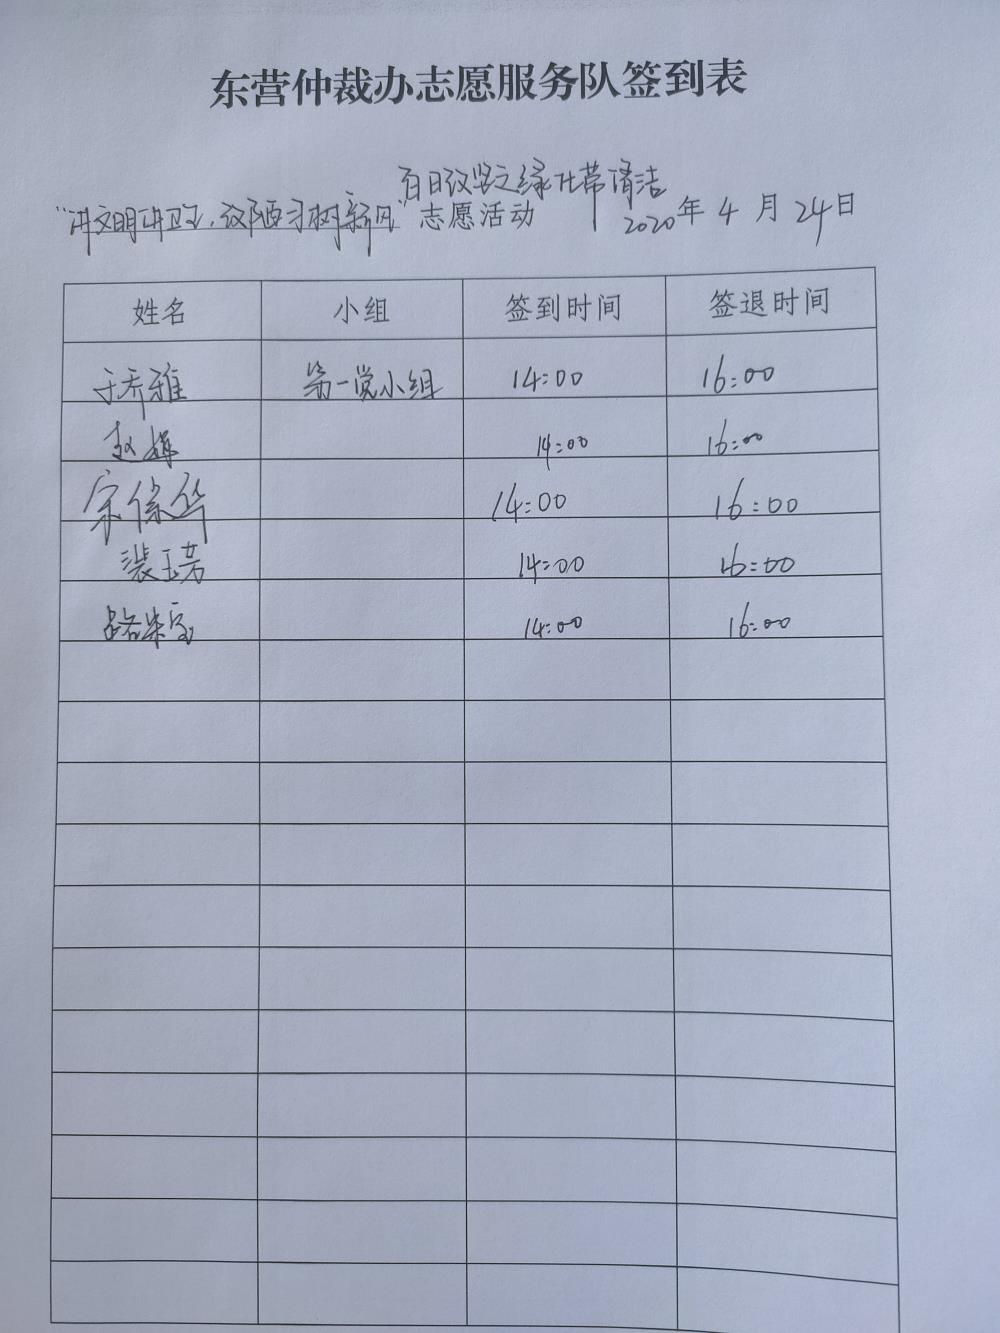 东营仲裁办志愿服务队签到表
百日攻坚之绿化带清洁
“讲文明讲卫生，改陋习树新风”志愿活动 2020年4月24日
姓名 小组 签到时间 签退时间
于乔雅 第一党小组 14:00 16:00
赵婷 14:00 16:00
宗保华 14:00 16:00
裴玉芳 14:00 16:00
14:00 16:00